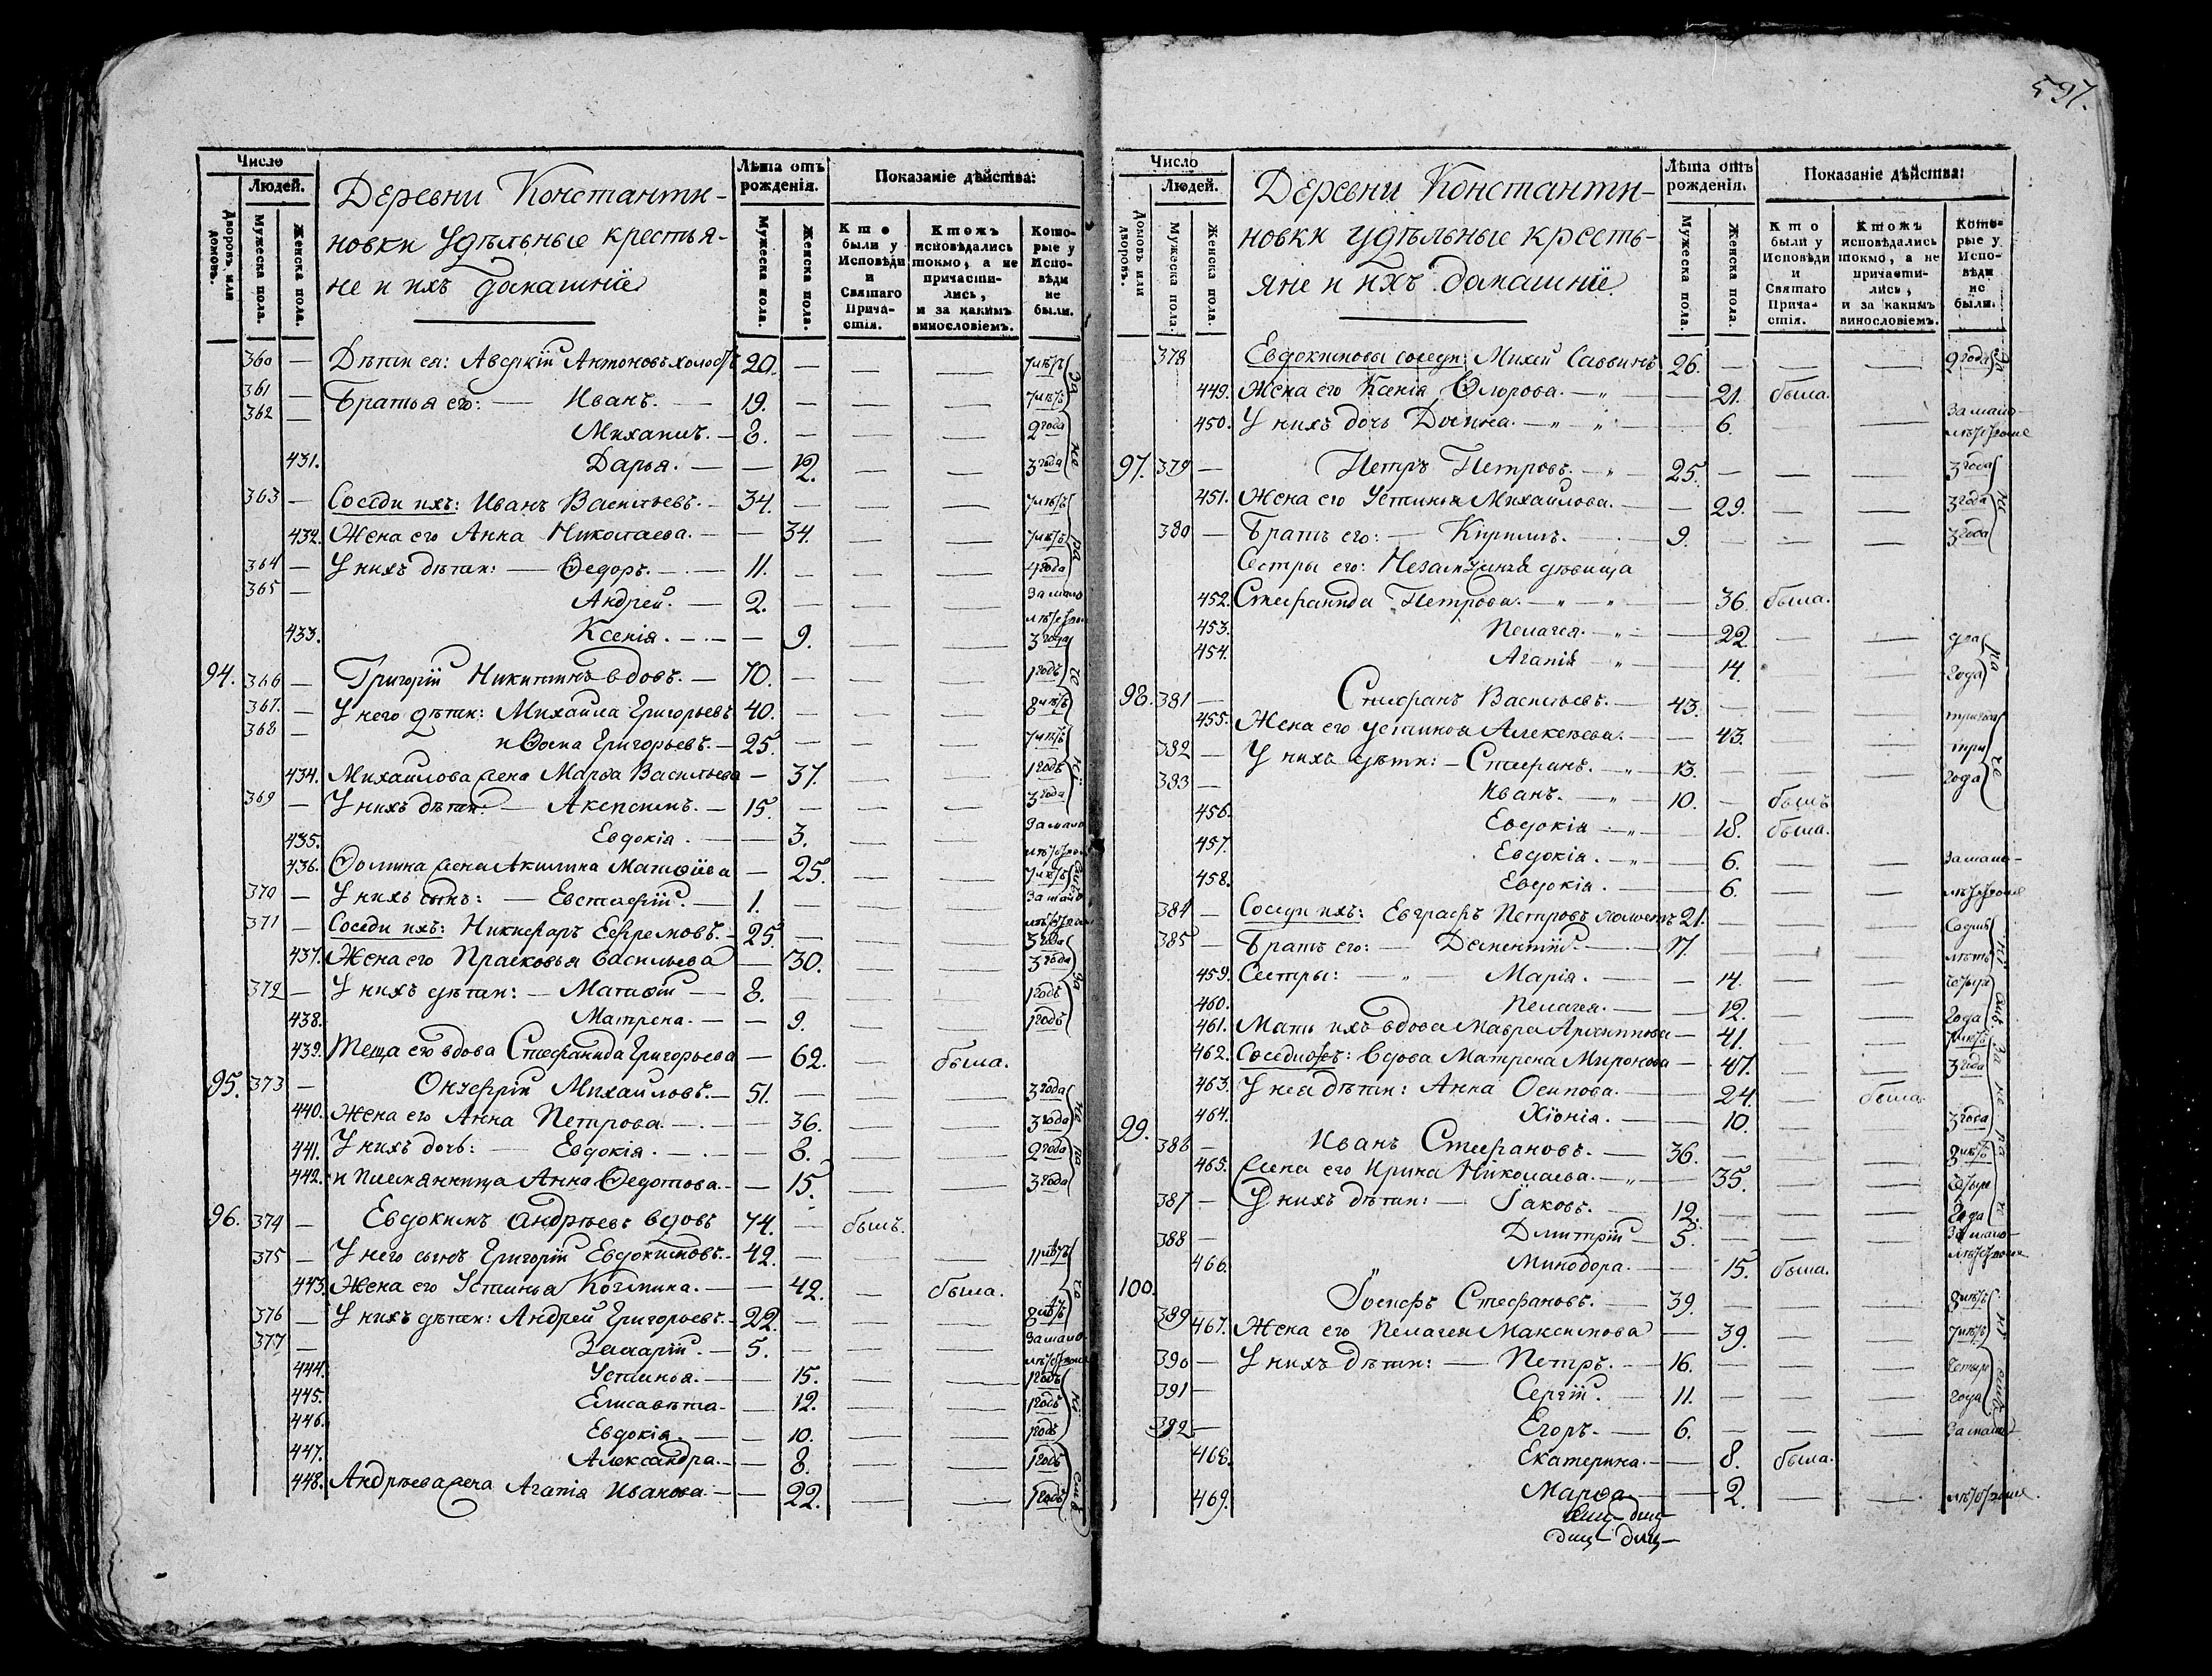 597.
Число
Людей.
Дворовъ или домовъ.
Мужеска пола.
Женска пола.
Деревни Константи-
новки Удѣльные крестья-
не и ихъ домашнiе
Лѣта отъ рожденія.
Мужеска пола.
Женска пола.
Показаніе дѣйства:
Кто были у Исповѣди и Святаго Прича-стія.
Ктожъ исповѣдались токмо, а не причасти-лись, и за какимъ винословіемъ.
Кото-рые у Испо-вѣди не были.
360 — Дѣти ея: Аверкiй Антоновъ холостъ 20. — — — 7 лѣтъ
361 — Братья его: — Иванъ. — 19. — — — 7 лѣтъ
362 — Михаилъ. — 8. — — — 2 года
431. Дарья. — — 12. — — 3 года
363 — Соседи ихъ: Иванъ Васильевъ. — 34. — — — 7 лѣтъ
432. Жена его Анна Николаева. — — 34. — — 7 лѣтъ
364 — У нихъ дѣти: — Ѳедоръ. — 11. — — — 4 года
365 — Андрей. — 2. — — — За мало
433. Ксенiя. — — 9. — — 3 года
94. 366 — Григорiй Никитинъ вдовъ. — 70. — — — 1 годъ
367. — У него дѣти: Михаила Григорьевъ 40. — — — 8 лѣтъ
368 — и Ѳома Григорьевъ. — 25. — — — 7 лѣтъ
434. Михайлова жена Марѳа Васильева — 37. — — 1 годъ
369 — У нихъ дѣти: — Акепсимъ. — 15. — — — 3 года
435. Евдокiя. — — 3. — — За мало
436. Ѳомина жена Акилина Матѳiева — 25. — — 7 лѣтъ
370 — У нихъ сынъ: — Евстафiй. — 1. — — — За мало
371 — Соседи ихъ: Никифоръ Ефремовъ. — 25. — — — 3 года
437. Жена его Прасковья Васильева — 30. — — 3 года
372 — У нихъ дѣти: — Матѳiй — 8. — — — 1 годъ
438. Матрена. — — 9. — — 1 годъ
439. Теща его вдова Стефанида Григорьева — 62. — была.
95. 373 — Онуфрiй Михайловъ. — 51. — — — 3 года
440. Жена его Анна Петрова. — — 36. — — 3 года
441. У нихъ дочь: — Евдокiя. — — 8. — — 2 года
442. и племянница Анна Ѳедотова. — — 15. — — 3 года
96. 374 — Евдокимъ Андрѣевъ вдовъ 74. — былъ.
375 — У него сынъ Григорiй Евдокимовъ. — 42. — — — 11 лѣтъ
443. Жена его Устинья Козмина. — — 42. — была.
376 — У нихъ дѣти: Андрей Григорьевъ. — 22. — — — 8 лѣтъ
377 — Захарiй. — 5. — — — За мало
444. Устинья. — — 15. — — 1 годъ
445. Елисавѣта — — 12. — — 1 годъ
446. Евдокiя. — — 10. — — 1 годъ
447. Александра. — — 8. — — 1 годъ
448. Андрѣева жена Агапiя Иванова. — — 22. — — 1 годъ
Число
Людей.
Домовъ или дворовъ.
Мужеска пола.
Женска пола.
Деревни Константи-
новки удѣльные кресть-
яне и ихъ домашнiе
Лѣта отъ рожденія.
Мужеска пола.
Женска пола.
Показаніе дѣйства:
Кто были у Исповѣди и Святаго Прича-стія.
Ктожъ исповѣдались токмо, а не причасти-лись, и за какимъ винословіемъ.
Кото-рые у Испо-вѣди не были.
378 Евдокимовы соседи: Михей Саввинъ 26. — — — 2 года
449. Жена его Ксенiя Ѳлорова. — — 21. была.
450. У нихъ дочь Домна. — — 6. — — За мало-
97. 379 — Петръ Петровъ. — 25. — — — 3 года
451. Жена его Устинья Михайлова. — — 29. — — 3 года
380 — Братъ его: — Кирилъ. — 9. — — — 3 года
Сестры его: Незамужняя дѣвица
452. Стефанида Петрова. — — 36. была.
453. Пелагея. — — 22. — — два
454. Агапiя — — 14. — года
98. 381 — Стефанъ Васильевъ. — 43. — — —
455. Жена его Устинья Алексѣева. — — 43. — — три
382 — У нихъ дѣти: — Стефанъ. — 13. — — — года
383 — Иванъ. — 10. — былъ
456. Евдокiя — — 18. была.
457. Евдокiя. — — 6. — — За мало-
458. Евдокiя. — — 6. — —
384 — Соседи ихъ: Евграфъ Петровъ холостъ 21. — — — Седмь
385 — Братъ его: — Дементiй — 17. — — — лѣтъ
459. Сестры: — Марiя. — — 14. — — четыре
460. Пелагея. — — 12. — — года
461. Мать ихъ вдова Мавра Архиппова — 41. — — 7 лѣтъ
462. Соседи: Вдова Матрена Миронова — 47. — — 3 года
463. У ней дѣти: Анна Осипова. — — 24. — была
464. Хiонiя. — — 10. — — 3 года
99. 386 — Иванъ Стефановъ. — 36. — — — 8 лѣтъ
465. Жена его Ирина Николаева. — — 35. — — четыре
387 — У нихъ дѣти: — Iаковъ. — 12. — — — года
388 — Дмитрiй — 5. — — — За мало-
466. Минодора. — — 15. была.
100. 389 Iосифъ Стефановъ. — 39. — — — 8 лѣтъ
467. Жена его Пелагея Максимова — 39. — — 7 лѣтъ
390 — У нихъ дѣти: — Петръ. — 16. — — — четыре
391 — Сергiй. — 11. — — — года
392 — Егоръ. — 6. — — — За мало
468. Екатерина. — — 8. была.
469. Марѳа — — 2. — —